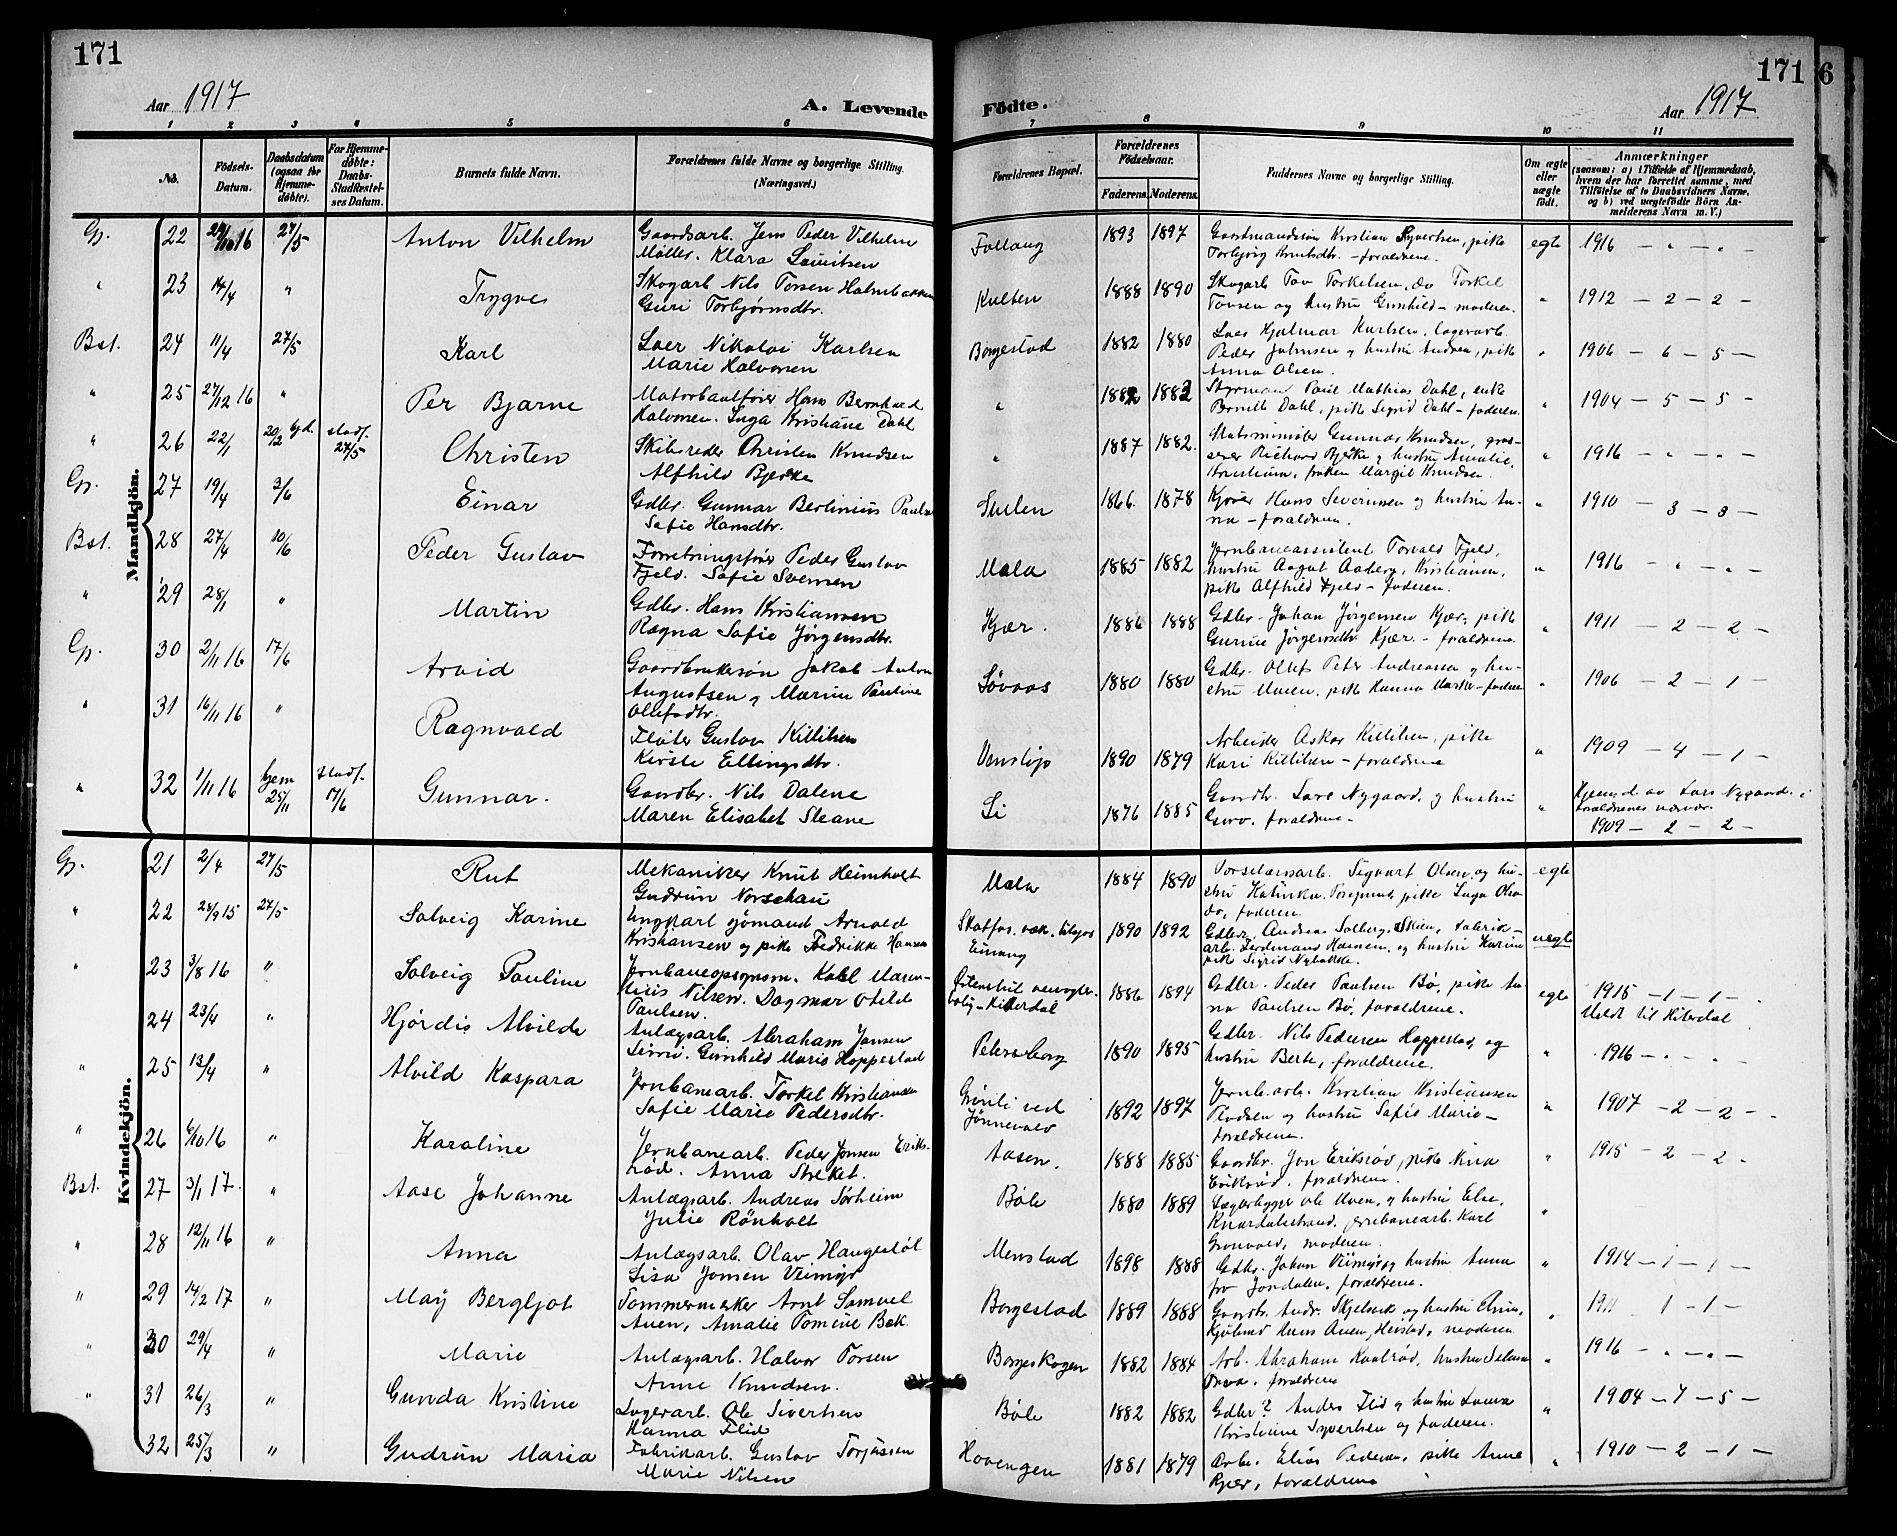 171
Aar 1917
A. Levende
Födte.
171 6
Aar 1917
1 2 3 4 5 6 7 8 9 10 11
No.
Födsels-Datum.
Daabsdatum (ogsaa for Hjemme-døbte).
For Hjemme-døbte: Daabs-Stadfæstel-ses Datum.
Barnets fulde Navn.
Forældrenes fulde Navne og borgerlige Stilling.
(Næringsvei.)
Forældrenes Bopæl.
Forældrenes Födselsaar.
Faderens. Moderens.
Faddernes Navne og borgerlige Stilling.
Om ægte eller uægte født.
Anmærkninger
(saasom: a) i Tilfælde af Hjemmedaab, hvem der har forrettet samme, med Tilføielse af to Daabsvidners Navne, og b) ved uægtefødte Börn Anmelderens Navn m. V.)
Mandkjön.
Gp. 22 16 27/5 Anton Vilhelm Gaardsarb. Jens Peder Vilhelm
Møller. Klara Lauritsen 1893 1897 Kristian Syvertsen, pike
Torbjørg Knutsdtr. - forældrene. egte 1916 - " - " -
" 23 14/4 " Trygve Skogarb. Nils Torsen
Guri Torbjørnsdtr. Kulten 1888 1890 Skogarb. Tov Torkelsen, Torkel
Tovsen og hustru Gunhild - moderen. " 1912 - 2 - 2 -
Bst. 24 11/4 27/5 Karl Nikolai Karlsen
Marie Halvorsen Borgestad 1882 1880 Hjalmar Karlsen, lagerarb.
Peder Johnsen og hustru Andrea, pike
Anna Olsen. " 1906 - 6 - 5 -
" 25 27/12 16 " Per Bjarne Motorbaatfører Hans Bernhard
Halvorsen. Inga Kristiane Dahl " 1882 1883 Styrmand Paul Mathias Dahl, enke
Dahl, pike Sigrid Dahl - faderen. " 1904 - 5 - 5 -
" 26 22/1 20/2 hjd. stadf. 27/5 Christen Skibsreder Christen Knudsen
Alfhild Bjerke " 1887 1882 Statsminister Gunnar Knudsen, gros-
serer Richard Bjerke og hustru Amalie,
Kristiania, frøken Margit Knudsen. " 1916 - " - " -
Gp. 27 19/4 3/6 Einar Gdbr. Gunnar Berlinius Paulsen
Sofie Hansdtr. 1866 1878 Hans Severinsen og hustru An-
na - forældrene. " 1910 - 3 - 3 -
Bst. 28 27/4 10/6 Peder Gustav Forretningsfører Peder Gustav
Fjeld. Sofie Svensen Mæla 1885 1882 Jernbaneassistent Torvald Fjeld,
hustru Aagot Aaberg, Kristiania,
pike Alfhild Fjeld - faderen. " 1916 - " - " -
" 29 28/1 " Martin Gdbr. Hans Kristiansen
Ragna Sofie Jørgensdtr. Kjær. 1886 1888 Gdbr. Johan Jørgensen Kjær, pike
Gurine Jørgensdtr. Kjær. - forældrene. " 1911 - 2 - 2 -
Gp. 30 2/11 16 17/6 Arvid Gaardbrukersøn Jakob Anton
Augustsen og Marine Pauline
Ollefsdtr. Løvaas 1880 1880 Gdbr. Ollef Peter Andreassen og hu-
stru Maren, pike Hanna - faderen " 1906 - 2 - 1 -
" 31 16/11 16 " Ragnvald Fløter Gustav Kittilsen
Kirsti Ellingsdtr. 1890 1879 Arbeider Asker Kittilsen, pike
Kari Kittilsen - forældrene " 1909 - 4 - 1 -
" 32 1/11 16 hjem 25/11 stadf. 17/6 Gunnar. Gaardbr. Nils Dalene
Maren Elisabet Sleane Li 1876 1885 Gaardbr. Lars Nygaard og hustru
Guro. forældrene - " Hjemmed. av Lars Nygaard i
forældrenes nærvær.
1909 - 2 - 2 -
Kvindekjön.
Gp. 21 2/4 27/5 Rut Mekaniker Knut Heimholt
Gudrun Norschau Mæla 1884 1890 Porselænsarb. Sigvart Olsen og hu-
stru Katinka, Porsgrund, pike Inga
faderen. egte
" 22 28/9 15 27/5 Solveig Karine Ungkarl sjømand Arnold
Kristiansen og pike Fredrikke Hansen 1890 1892 Gdbr. Andreas Solberg, Skien, fabrik-
arb. Ferdinand Hansen og hustru Karine
pike Sigrid uegte
" 23 3/8 16 " Solveig Pauline Jernbaneopsynsm. Karl Maren-
tius Nilsen. Dagmar Otilde
Paulsen. 1886 1894 Gdbr. Peder Paulsen Bø, pike An-
na Paulsen Bø, forældrene. egte 1915 - 1 - 1 -
Meldt til Hiterdal
24 23/4 " Hjørdis Alvilde Anlægsarb. Abraham Jonsen
Gunhild Marie Hoppestad Petersborg 1890 1895 Gdbr. Nils Pedersen Hoppestad og
hustru Berte, forældrene. " 1916 - " - " -
" 25 13/4 " Alvild Kaspara Jernbanearb. Torkel Kristiansen
Sofie Marie Pedersdtr. Grønli ved
Jønnevald 1892 1897 Jernb.arb. Kristian Kristiansen
og hustru Sofie Marie -
forældrene. " 1907 - 2 - 2 -
" 26 6/10 16 " Karoline Jernbanearb. Peder Jonsen Eriks-
rød. Anna Aasen. 1888 1885 Gaardbr. Jon Eriksrød, pike
Eriksrød. forældrene. " 1915 - 2 - 2 -
Bst. 27 3/1 17. " Aase Johanne Anlægsarb. Andreas Sørheim
Julie Rønholt Bøle 1880 1889 og hustru Else,
Knardalstrand, jernbanearb. Karl
Grønvold, moderen. "
" 28 12/11 16 " Anna Anlægsarb. Olav Haugestøl
Lisa Jonsen Menstad 1898 1888 Gdbr. Johan og hustru Anna
fra Jondalen, forældrene. " 1914 - 1 - 1 -
" 29 14/2 17 " May Bergljot Tømmermerker Arnt Samuel
Auen, Amalie Tomine Bek Borgestad 1889 1888 Gaardbr. Andr. Skjelsvik og hustru
Hans Auen, Herstad, moderen " 1911 - 1 - 1 -
" 30 29/4 " Marie Anlægsarb. Halvor Torsen
Anne Knudsen. Borgeskogen 1882 1884 Arb. Abraham hustru
forældrene " 1916 - " - " -
" 31 26/3 " Gunda Kristine Lagerarb. Ole Sivertsen
Hanna Flid Bøle 1882 1882 Gdbr? Anders Flid og hustru Laura
Kristiane Syvertsen og faderen. " 1904 - 7 - 5 -
32 25/3 " Gudrun Maria Fabrikarb. Gustav Torjussen
Marie Nilsen Hovengen 1881 1879 Arb. Elias Pedersen, pike Anne
Kjær, forældrene " 1910 - 2 - 1 -